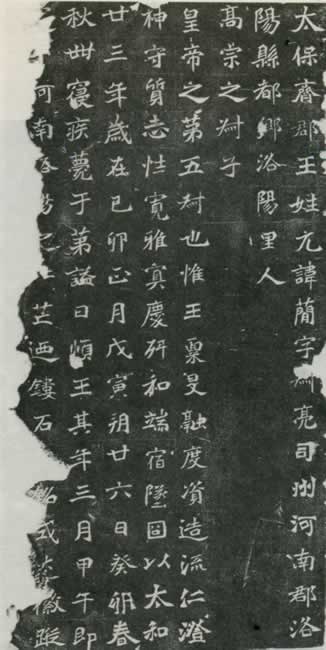 太保齊郡王姓元諱簡字叔亮司州河南郡洛
陽縣都鄉洛陽里人
高宗之叔子
皇帝之第五叔也惟王稟旻融度資造流仁澄
神守質志性寬雅寘慶研和端宿墜固以太和
廿三年歲在己卯正月戊寅朔廿六日癸卯春
秋卌寢疾薨于第謚曰順王其年三月甲午即
河南洛陽之芒迺鏤石銘式徽蹤